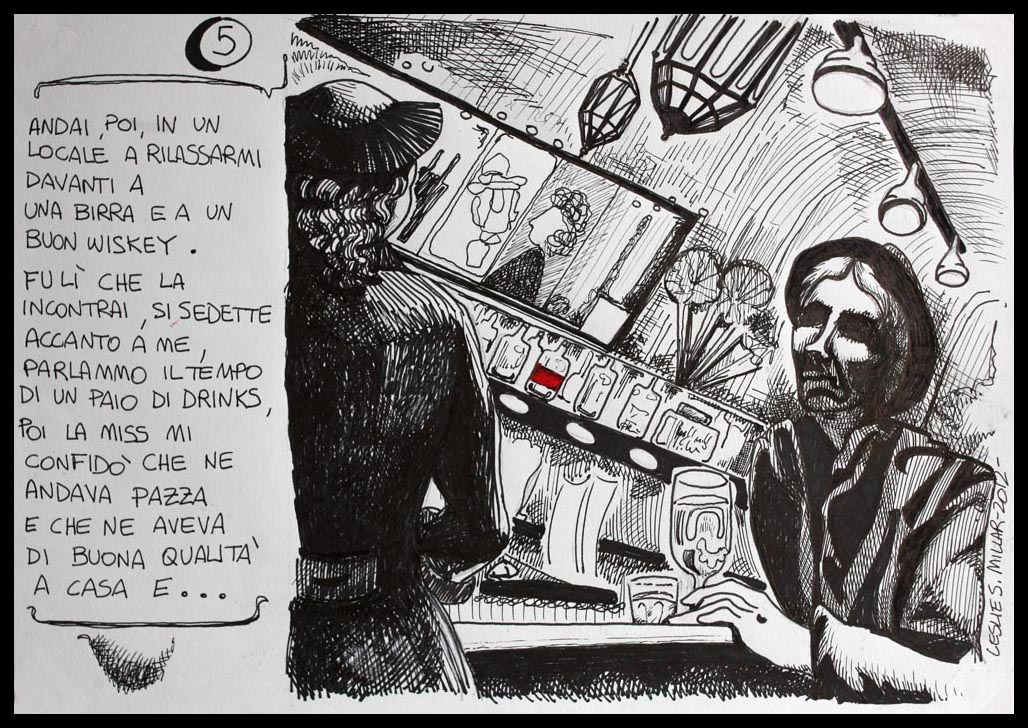 5
ANDAI, POI, IN UN
LOCALE A RILASSARMI
DAVANTI A
UNA BIRRA E A UN
BUON WISKEY.
FU LÌ CHE LA
INCONTRAI, SI SEDETTE
ACCANTO A ME,
PARLAMMO IL TEMPO
DI UN PAIO DI DRINKS,
POI LA MISS MI
CONFIDÒ CHE NE
ANDAVA PAZZA
E CHE NE AVEVA
DI BUONA QUALITA'
A CASA E...
LESLIE S. MILLAR-2012-